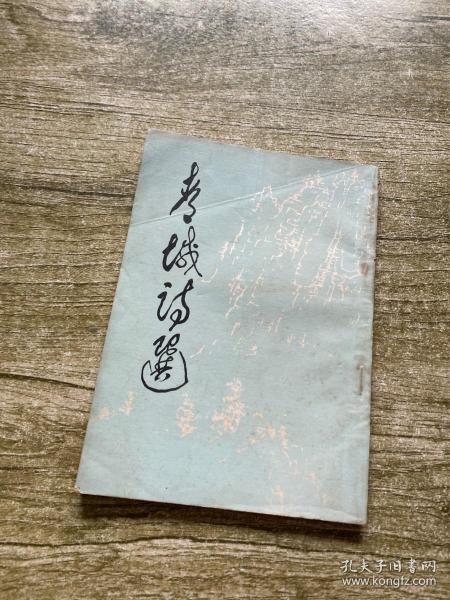 青城诗選
孔夫子旧书网
www.kongfz.com